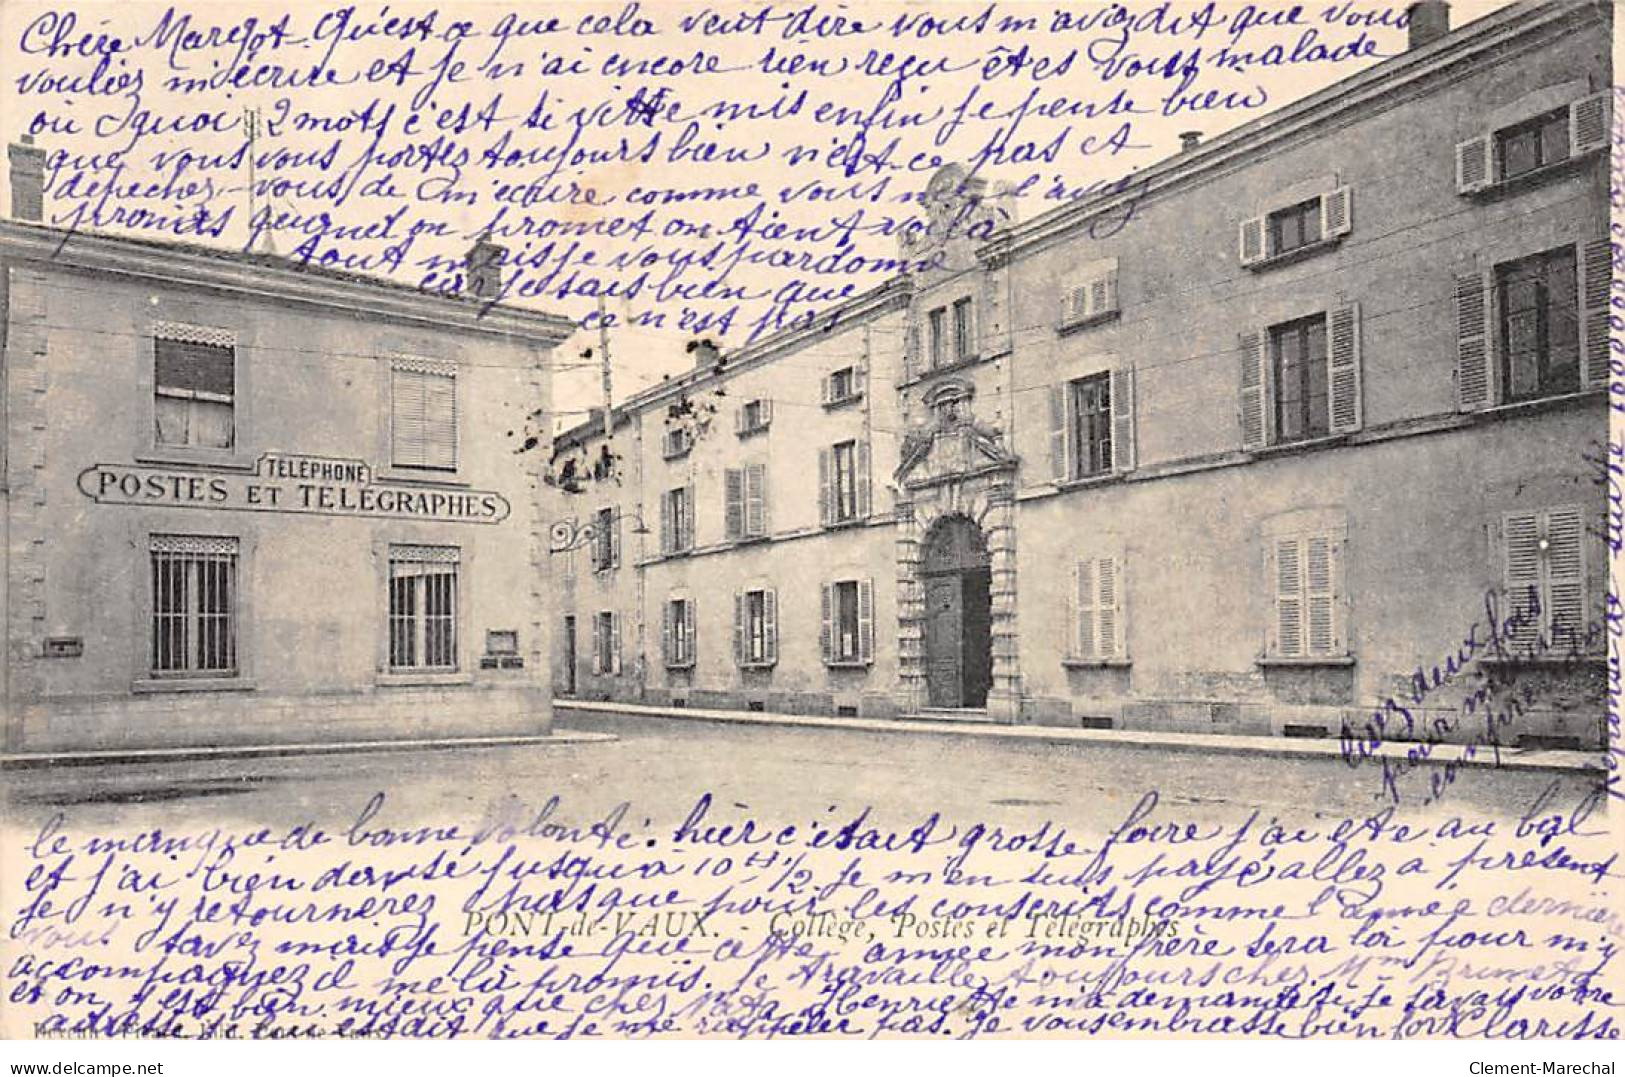 Chère Margot. Qu'est ce que cela veut dire vous m'aviez dit que vous
vouliez m'écrire et je n'ai encore rien reçu êtes vous malade
ou quoi 2 mots c'est si vitte mis enfin je pense bien
que vous vous portez toujours bien n'est-ce pas et
depechez-vous de m'ecrire comme vous me l'avez
promis quand on promet on tient voilà
tout mais je vous pardonne
car je sais bien que
ce n'est pas
TÉLÉPHONE
POSTES ET TÉLÉGRAPHES
Lisez deux fois
pour
Reponse de suitte
le manque de bonne volonté. hier c'était grosse foire j'ai ete au bal
et j'ai bien densé jusqu'à 10 H 1/2 je m'en suis payé allez à présent
je n'y retournerez pas que pour les conscrits comme l'année dernière
vous savez mait je pense que cette année mon frère sera loi pour m'y
accompagnez il me là promis. je travaille toujours chez Mme Brunet
et on y est bien mieux que chez Henriette m'a demandé si je savais votre
je me rappeler pas. je vous embrasse bien fort Clarisse
PONT-de-VAUX. - Collège, Postes et Télégraphes
Clement-Marechal